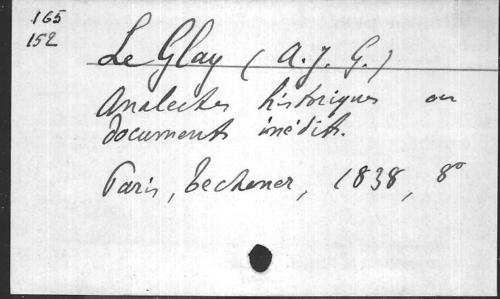 165
152
Le Glay (A. J. G.)
Analectes historiques ou
documents inédits.
Paris, Techener, 1838, 8°